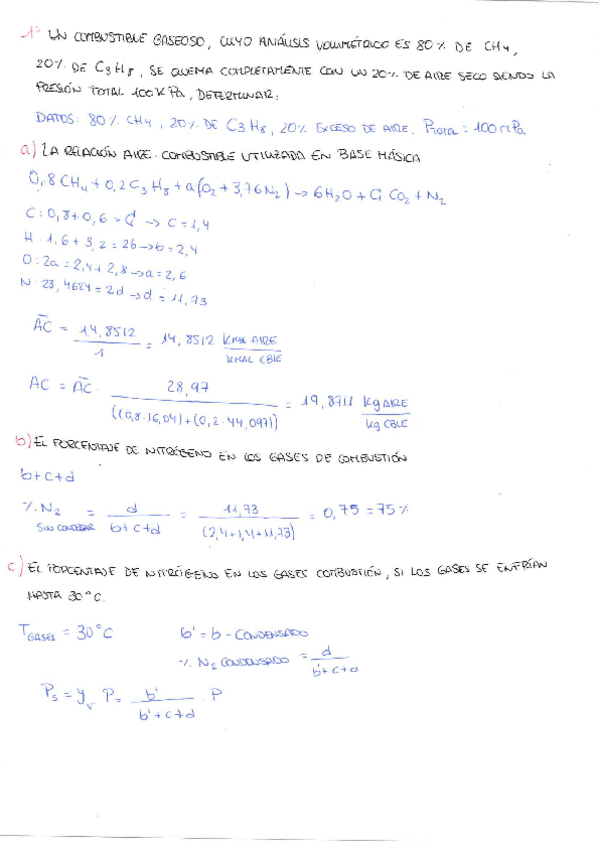 1º UN COMBUSTIBLE GASEOSO, CUYO ANÁLISIS VOLUMÉTRICO ES 80% DE CH4,
20% DE C3H8, SE QUEMA COMPLETAMENTE CON UN 20% DE AIRE SECO SIENDO LA
PRESIÓN TOTAL 100KPa, DETERMINAR:
DATOS: 80% CH4, 20% DE C3H8, 20% EXCESO DE AIRE. PTOTAL = 100 MPa
a) LA RELACIÓN AIRE-COMBUSTIBLE UTILIZADA EN BASE MÁSICA
0,8CH4 + 0,2 C3H8 + a(O2 + 3,76N2) → bH2O + C CO2 + N2
C: 0,8 + 0,6 = C → C = 1,4
H: 1,6 + 3,2 = 2b → b = 2,4
O: 2a = 2,4 + 2,8 → a = 2,6
N: 23,4624 = 2d → d = 11,73
AC = 14,8512 / 1 = 14,8512 KMOL AIRE / KMOL CBLE
AC = AC · 28,97 / ((0,8·16,04)+(0,2·44,0971)) = 19,8711 Kg AIRE / Kg CBLE
b) EL PORCENTAJE DE NITRÓGENO EN LOS GASES DE COMBUSTIÓN
b+c+d
% N2 SIN CONDENSAR = d / b+c+d = 11,73 / (2,4+1,4+11,73) = 0,75 = 75%
c) EL PORCENTAJE DE NITRÓGENO EN LOS GASES COMBUSTIÓN, SI LOS GASES SE ENFRÍAN
HASTA 30ºC.
TGASES = 30ºC b' = b - CONDENSADO
% N2 CONDENSADO = d / b'+c+d
Ps = yv P = b' / b'+c+d · P